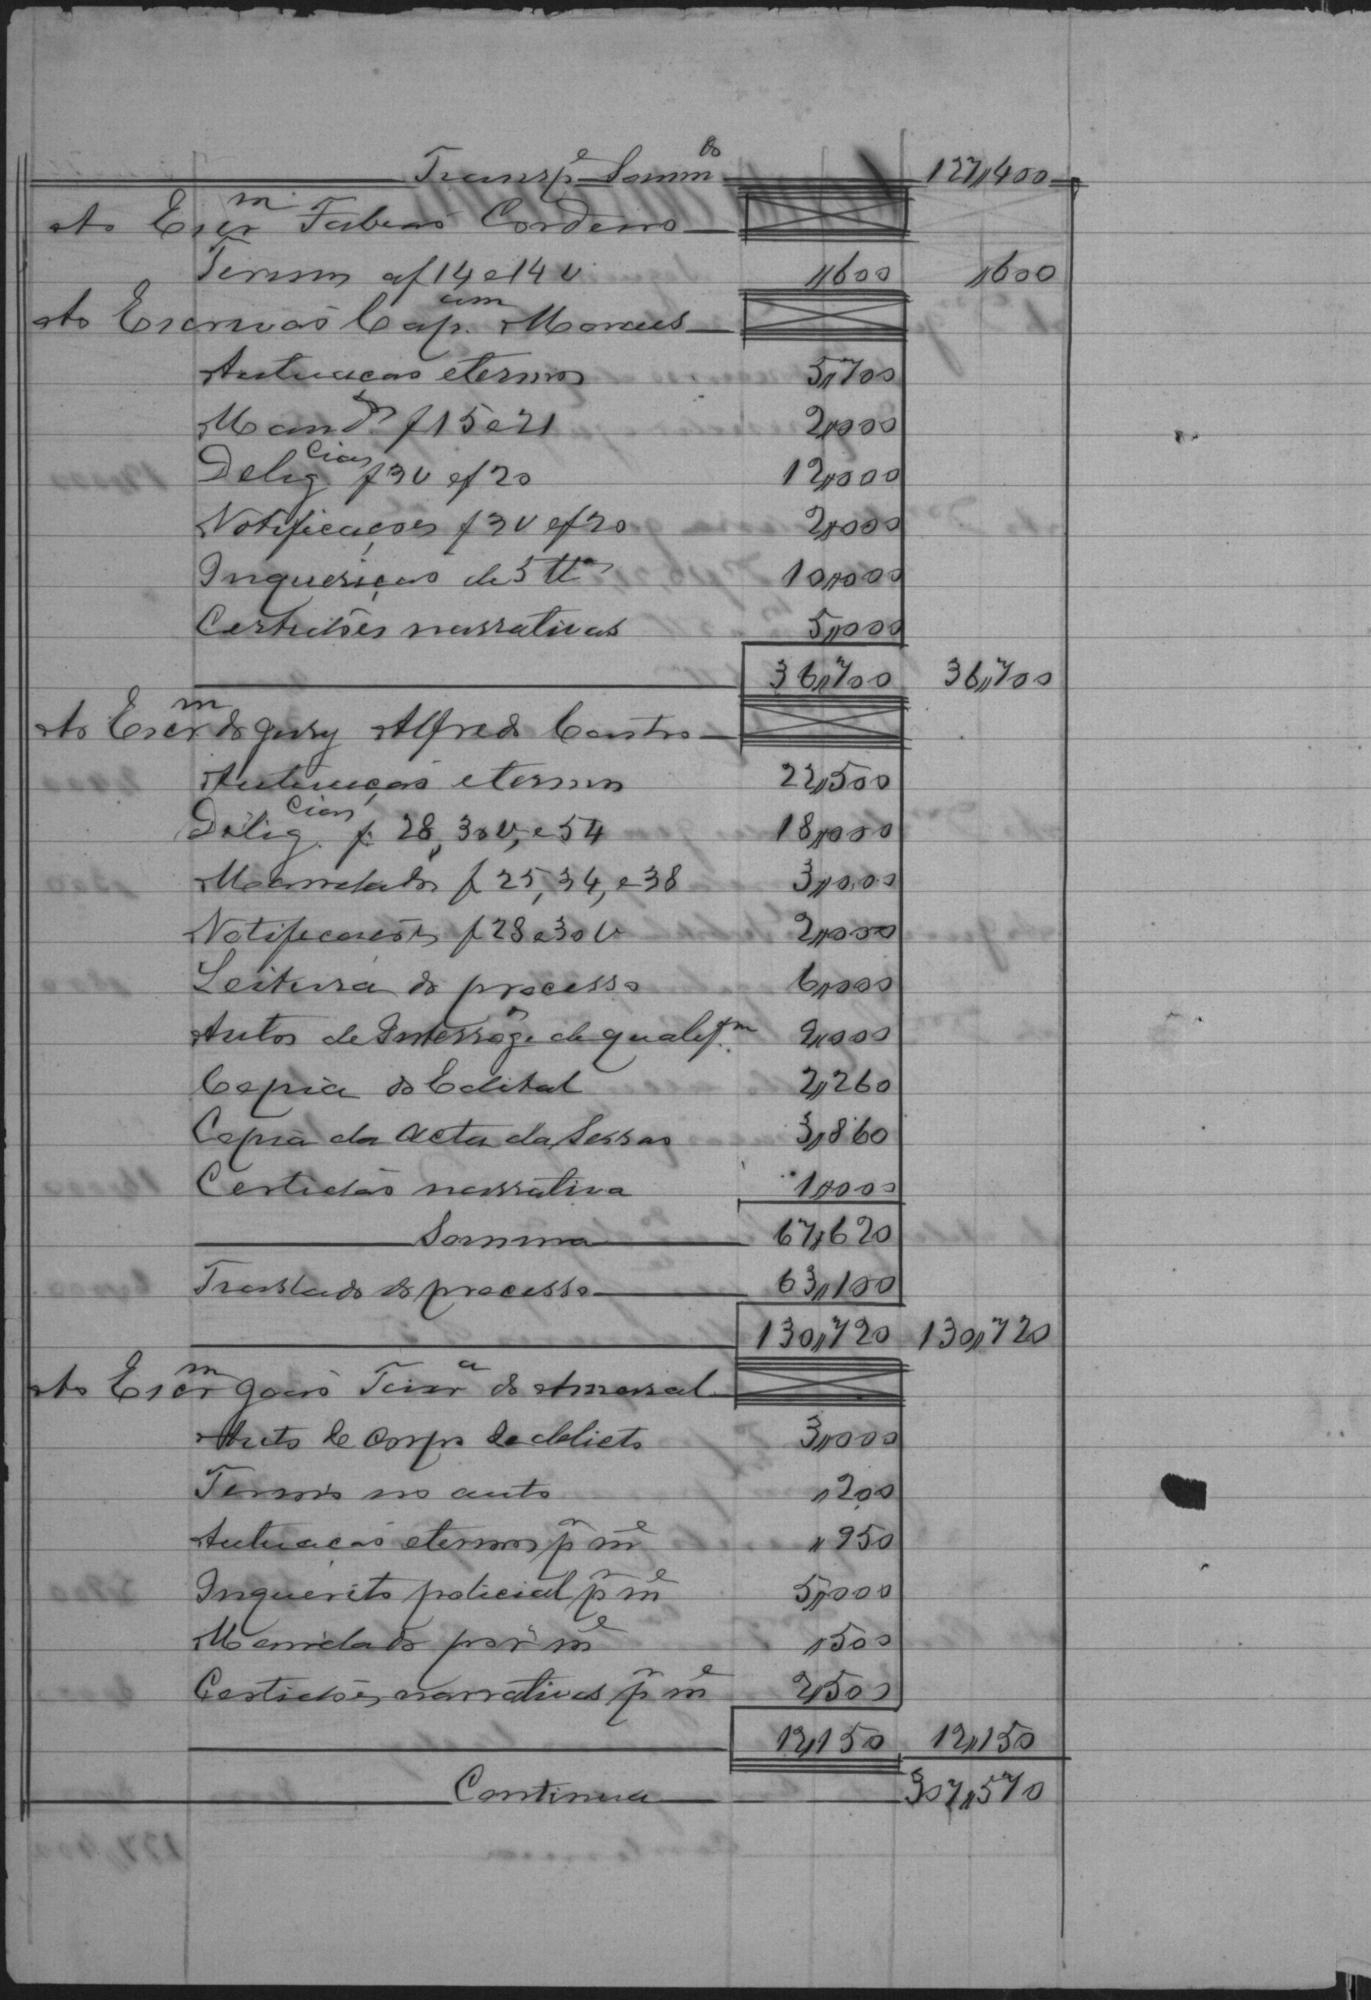 Transp.e Somm.do 127,,400
Ao Escr.m Fabião Cordeiro
Termos af 14 e 14 v ,,600 ,,600
Ao Escrivão Cap.am Moraes
Autuacão e termos 5,,700
Mand.os f 15 e 21 2,,000
Delig.cias f 3 v ef 20 12,,000
Notificações f 3 v ef 20 2,,000
Inquerição de 5 tt.as 10,,000
Certidões narrativas 5,,000
36,,700 36,,700
Ao Escr.m do jury Alfredo Castro
Autuação e termos 22,,500
Delig.cias f. 28, 30v, e 54 18,,000
Mandados f 25, 34, e 38 3,,000
Notificacões f 28 e 30 v 2,,000
Leitura do processo 6,,000
Autos de Interrog. de qualif.am 9,,000
Copia do Edital 2,,260
Copia da Acta da Sessão 3,,860
Certidão narrativa 1,,000
Somma 67,,620
Traslado do processo 63,,100
130,,720 130,,720
Ao Escr.m João Teixr.a do Amaral
Auto de corpo de delicto 3,,000
Termos no auto ,,200
Autuacão e termos p.r m.e ,,950
Inquerito policial p.r m.e 5,,000
Mandado por m.e ,,500
Certidões narrativas p.r m.e 2,500
12,,150 12,,150
Continua 307,,570